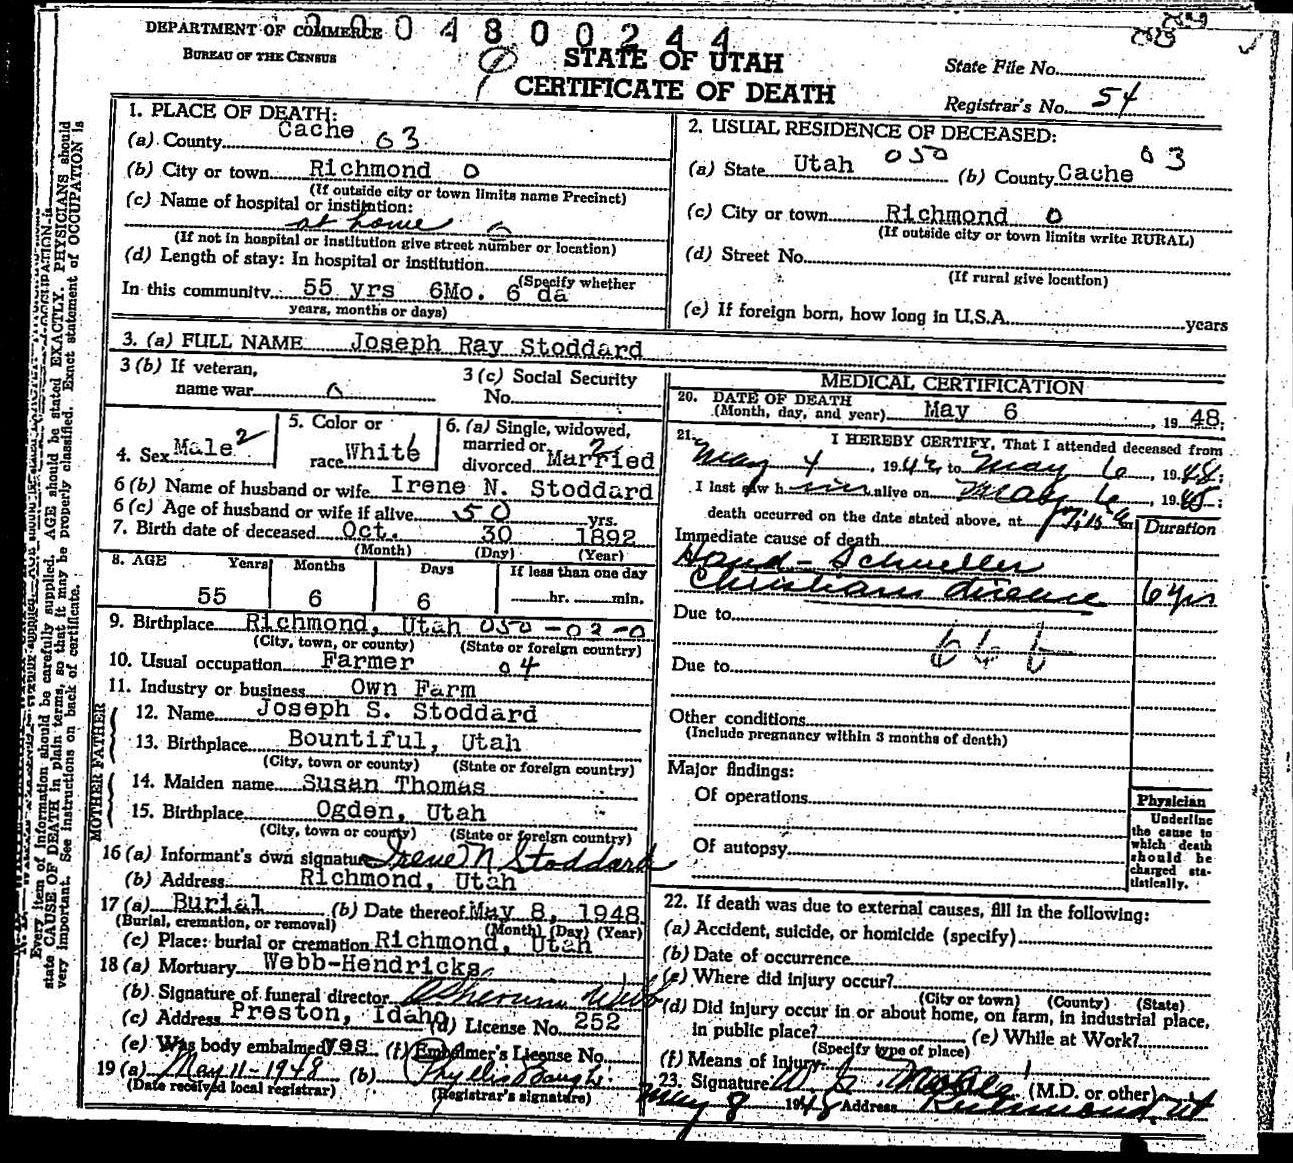 DEPARTMENT OF COMMERCE
BUREAU OF THE CENSUS
004800244
STATE OF UTAH
CERTIFICATE OF DEATH
State File No.
Registrar's No. 54
1. PLACE OF DEATH:
(a) County Cache 03
(b) City or town Richmond 0
(If outside city or town limits name Precinct)
(c) Name of hospital or institution:
at home
(If not in hospital or institution give street number or location)
(d) Length of stay: In hospital or institution
(Specify whether
In this community 55 yrs 6Mo. 6 da
years, months or days)
2. USUAL RESIDENCE OF DECEASED:
(a) State Utah 050 (b) County Cache 03
(c) City or town Richmond 0
(If outside city or town limits write RURAL)
(d) Street No.
(If rural give location)
(e) If foreign born, how long in U.S.A. years
3. (a) FULL NAME Joseph Ray Stoddard
3 (b) If veteran,
name war 0
3 (c) Social Security
No.
4. Sex Male 2
5. Color or
race White
6. (a) Single, widowed,
married or 2
divorced Married
6 (b) Name of husband or wife Irene N. Stoddard
6 (c) Age of husband or wife if alive 50 yrs.
7. Birth date of deceased Oct. 30 1892
(Month) (Day) (Year)
8. AGE Years Months Days If less than one day
55 6 6 hr. min.
9. Birthplace Richmond, Utah 050-02-0
(City, town, or county) (State or foreign country)
10. Usual occupation Farmer 04
11. Industry or business Own Farm
FATHER
12. Name Joseph S. Stoddard
13. Birthplace Bountiful, Utah
(City, town or county) (State or foreign country)
MOTHER
14. Maiden name Susan Thomas
15. Birthplace Ogden, Utah
(City, town or county) (State or foreign country)
16 (a) Informant's own signature Irene N Stoddard
(b) Address Richmond, Utah
17 (a) Burial (b) Date thereof May 8, 1948
(Burial, cremation, or removal) (Month) (Day) (Year)
(c) Place: burial or cremation Richmond, Utah
18 (a) Mortuary Webb-Hendricks
(b) Signature of funeral director
(c) Address Preston, Idaho (d) License No. 252
(e) Was body embalmed yes (f) Embalmer's License No.
19 (a) May 11-1948 (b) Phyllis
(Date received local registrar) (Registrar's signature)
MEDICAL CERTIFICATION
20. DATE OF DEATH
(Month, day, and year) May 6, 1948;
21. I HEREBY CERTIFY, That I attended deceased from
May 4, 1942 to May 6, 1948;
I last saw him alive on May 6, 1948;
death occurred on the date stated above, at
Duration
Immediate cause of death
Hand-Schueller
Christians disease 6 yrs
Due to
666
Due to
Other conditions
(Include pregnancy within 3 months of death)
Major findings:
Of operations
Of autopsy
Physician
Underline
the cause to
which death
should be
charged sta-
tistically.
22. If death was due to external causes, fill in the following:
(a) Accident, suicide, or homicide (specify)
(b) Date of occurrence
(c) Where did injury occur?
(City or town) (County) (State)
(d) Did injury occur in or about home, on farm, in industrial place,
in public place? (e) While at Work?
(Specify type of place)
(f) Means of Injury
23. Signature (M.D. or other)
May 8 1948 Address Richmond, Ut
Every item of information should be carefully supplied. AGE should be stated EXACTLY. PHYSICIANS should
state CAUSE OF DEATH in plain terms, so that it may be properly classified. Exact statement of OCCUPATION is
very important. See instructions on back of certificate.